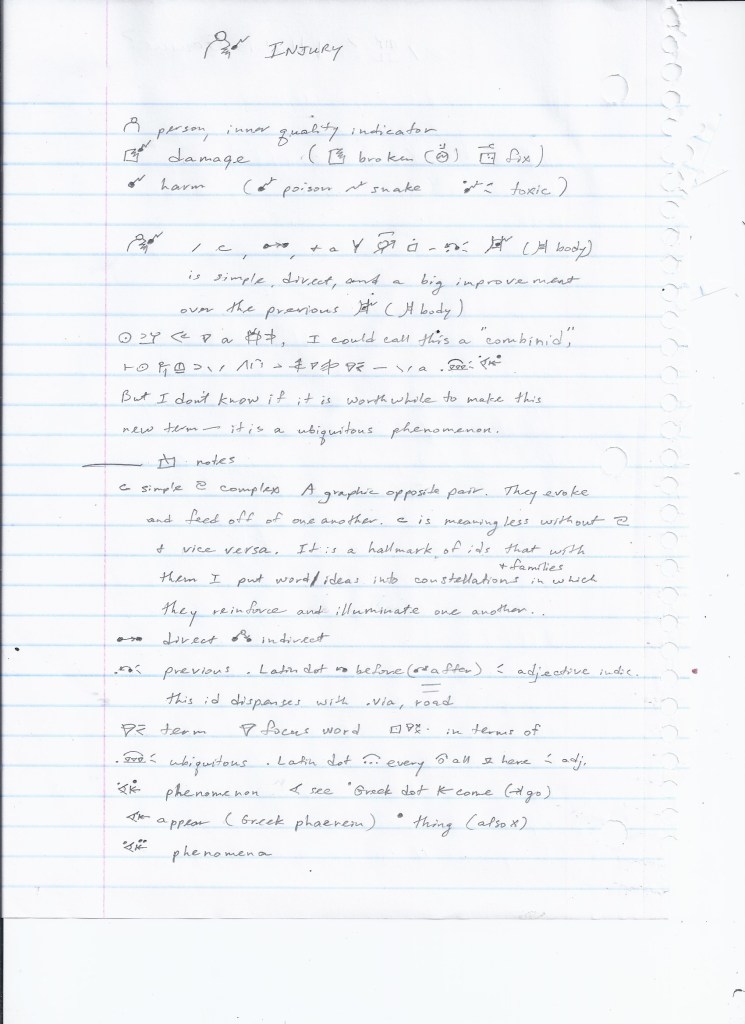 INJURY
person, inner quality indicator
damage ( broken ( ) fix )
harm ( poison snake toxic )
/ c, , + a - ( body)
is simple, direct, and a big improvement
over the previous ( body )
a , I could call this a "combinid",
a
But I don't know if it is worthwhile to make this
new term — it is a ubiquitous phenomenon.
notes
simple complex A graphic opposite pair. They evoke
and feed off of one another. c is meaningless without
+ vice versa. It is a hallmark of ids that with
+ families
them I put word/ideas into constellations in which
they reinforce and illuminate one another..
direct indirect
previous . Latin dot before ( after) adjective indic.
this id dispenses with .via, road
term focus word in terms of
ubiquitous . Latin dot every all here adj.
phenomenon see Greek dot come ( go)
appear (Greek phaerein) thing (also x)
phenomena